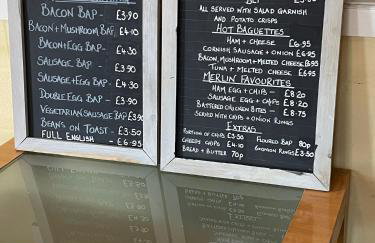 BACON BAP - £3.90
BACON+MUSHROOM BAP, £4.10
BACON+EGG BAP - £4.30
SAUSAGE BAP - £3.90
SAUSAGE+EGG BAP - £4.30
DOUBLE EGG BAP - £3.90
VEGETARIAN SAUSAGE BAP £3.90
BEANS ON TOAST - £3.50
FULL ENGLISH - £6.95
BLT
ALL SERVED WITH SALAD GARNISH
AND POTATO CRISPS
HOT BAGUETTES
HAM + CHEESE £6.95
CORNISH SAUSAGE + ONION £6.95
BACON, MUSHROOM + MELTED CHEESE £6.95
TUNA + MELTED CHEESE £6.95
MERLIN FAVOURITES
HAM EGG + CHIPS - £8.20
SAUSAGE EGG + CHIPS - £8.20
BATTERED CHICKEN BITES - £8.75
SERVED WITH CHIPS + ONION RINGS
EXTRAS
PORTION OF CHIPS £3.50 FLOURED BAP 80p
CHEESY CHIPS £4.10 6 ONION RINGS £3.50
BREAD + BUTTER 70p